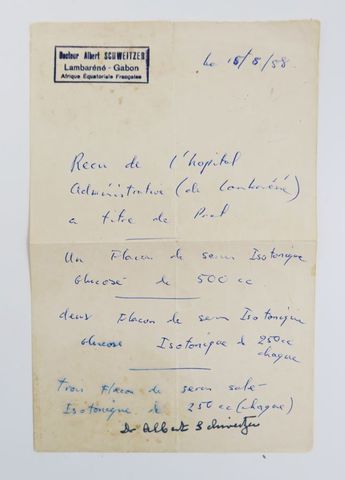 Docteur Albert SCHWEITZER
Lambaréné - Gabon
Afrique Équatoriale Française
Le 15/5/58
Recu de l'hopital
Administrative (de Lambaréné)
a titre de Pret
Un Flacon de serum Isotonique
Glucosé de 500 cc
deux Flacon de serum Isotonique
Glucose Isotonique de 250cc
chaque
Trois Flacon de serum salé
Isotonique de 250 cc (chaque)
Dr Albert Schweitzer